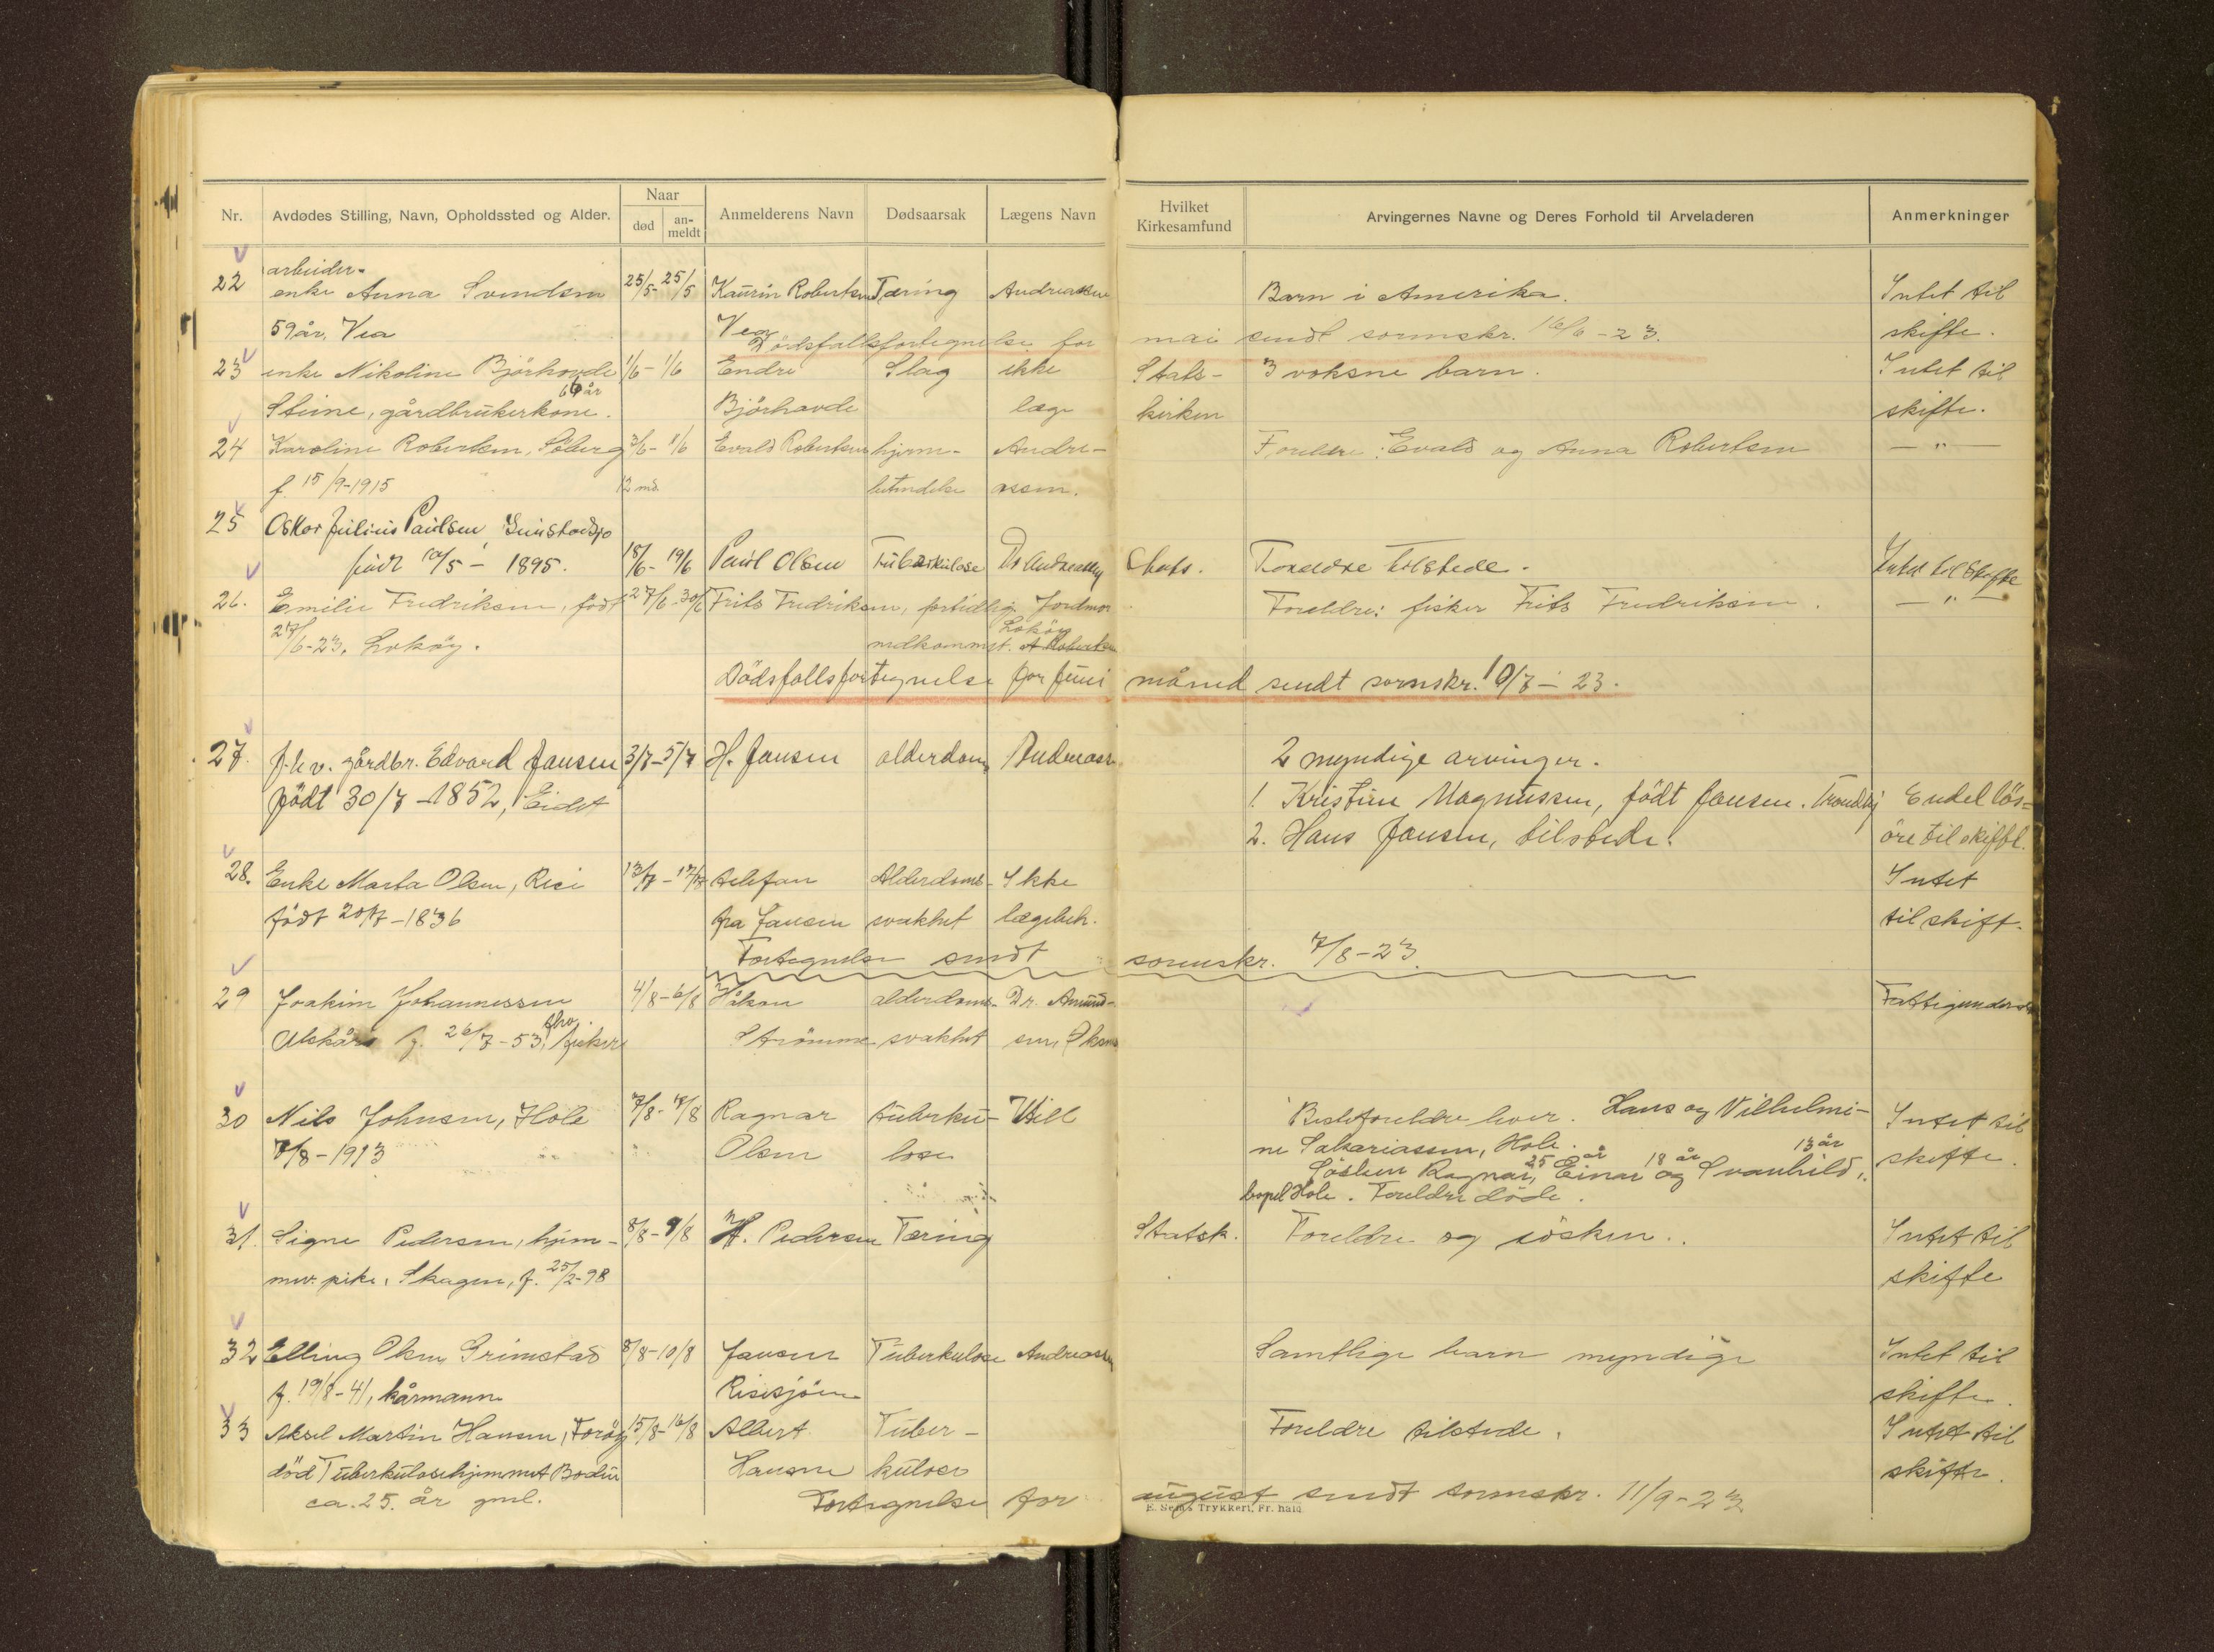 Nr. Avdødes Stilling, Navn, Opholdssted og Alder. Naar død an-meldt Anmelderens Navn Dødsaarsak Lægens Navn Hvilket Kirkesamfund Arvingernes Navne og Deres Forhold til Arveladeren Anmerkninger
arbeider-
22 enke Anna Svendsen 25/5- 25/5 Kaurin Robertsen Tæring Andreassen Barn i Amerika. Intet til
59 år, Vea Vea skifte.
Dödsfallsfortegnelse for mai sendt sornskr. 16/6-23.
23 enke Nikoline Björhovde 1/6- 1/6 Endre Slag ikke Stats- 3 voksne barn. Intet til
Steine, gårdbrukerkone. 66 år Björhovde læge kirken skifte.
24 Karoline Robertsen, Söberg 3/6- 11/6 Evald Robertsen hjerne- Andre- Foreldre: Evald og Anna Robertsen — " —
f. 15/9-1915 12 md. betendelse assen.
25 Oskar Julius Paulsen
født 10/5- 1895. 18/6- 19/6 Paul Olsen Tuberkulose Dr Andreassen Stats. Foreldre tilstede. Intet til Skifte
26. Emilie Fredriksen, født 27/6-30/6 Frits Fredriksen, fortidlig Jordmor Foreldre: fisker Frits Fredriksen. — " —
27/6-23, Loköy. nedkommst. Loköy A Robertsen
Dödsfallsfortegnelse for juni måned sendt sornskr. 10/7-23.
27. f.h.v. gårdbr. Edvard Jansen 3/7-5/7 H. Jansen alderdom Andreass. 2 myndige arvinger.
født 30/7-1852, Eidet 1. Kristine Magnussen, født Jansen. Trondhj Endel lös-
2. Hans Jansen, tilstede. öre til skifte.
28. Enke Marta Olsen, Risö 13/7-17/7 telefon Alderdoms- Ikke Intet
født 20/7-1836 fra Jansen svakhet lægebeh. til skift.
Fortegnelse sendt sornskr. 7/8-23
29 Joakim Johannessen 4/8-6/8 Håkon alderdoms- Dr. Amund- Fattigunderst
Alskår f. 26/7-53, fhv. fisker Strömme svakhet sen, Öksnes
30 Nils Johnsen, Hole 7/8- 7/8 Ragnar tuberku- Will Besteforeldre lever. Hans og Vilhelmi- Intet til
7/8-1913 Olsen lose ne Sakariassen, Hole. skifte.
Sösken Ragnar, 25 år Einar 18 år og Svanhild, 13 år
bopel Hole. Foreldre döde.
31. Signe Pedersen, hjem- 8/8-9/8 H. Pedersen Tæring Statsk. Foreldre og sösken. Intet til
mev. pike, Skagen, f. 25/2-98 skifte
32 Elling Olsen Grimstad 8/8-10/8 Jansen Tuberkulose Andreassen Samtlige barn myndige Intet til
f. 19/8-41, kårmann Risesjöen skifte.
33 Aksel Martin Hansen, Foröy 15/8-16/8 Albert Tuber- Foreldre tilstede. Intet til
död Tuberkulosehjemmet Bodin Hansen kulose skifte.
ca. 25. år gml.
Fortegnelse for august sendt sornskr. 11/9-23
E. Sems Trykkeri, Fr. hald